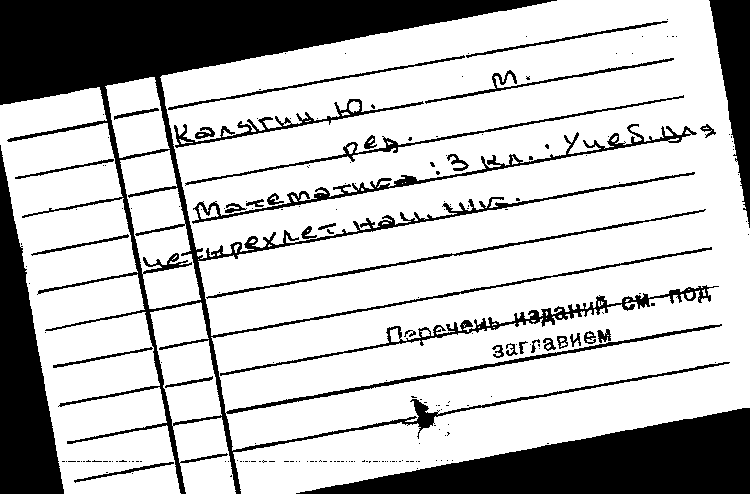 Колягин, Ю. м.
ред.
Математика : 3 кл. : Учеб. для
четырехлет. нач. шк.
Перечень изданий см. под
заглавием